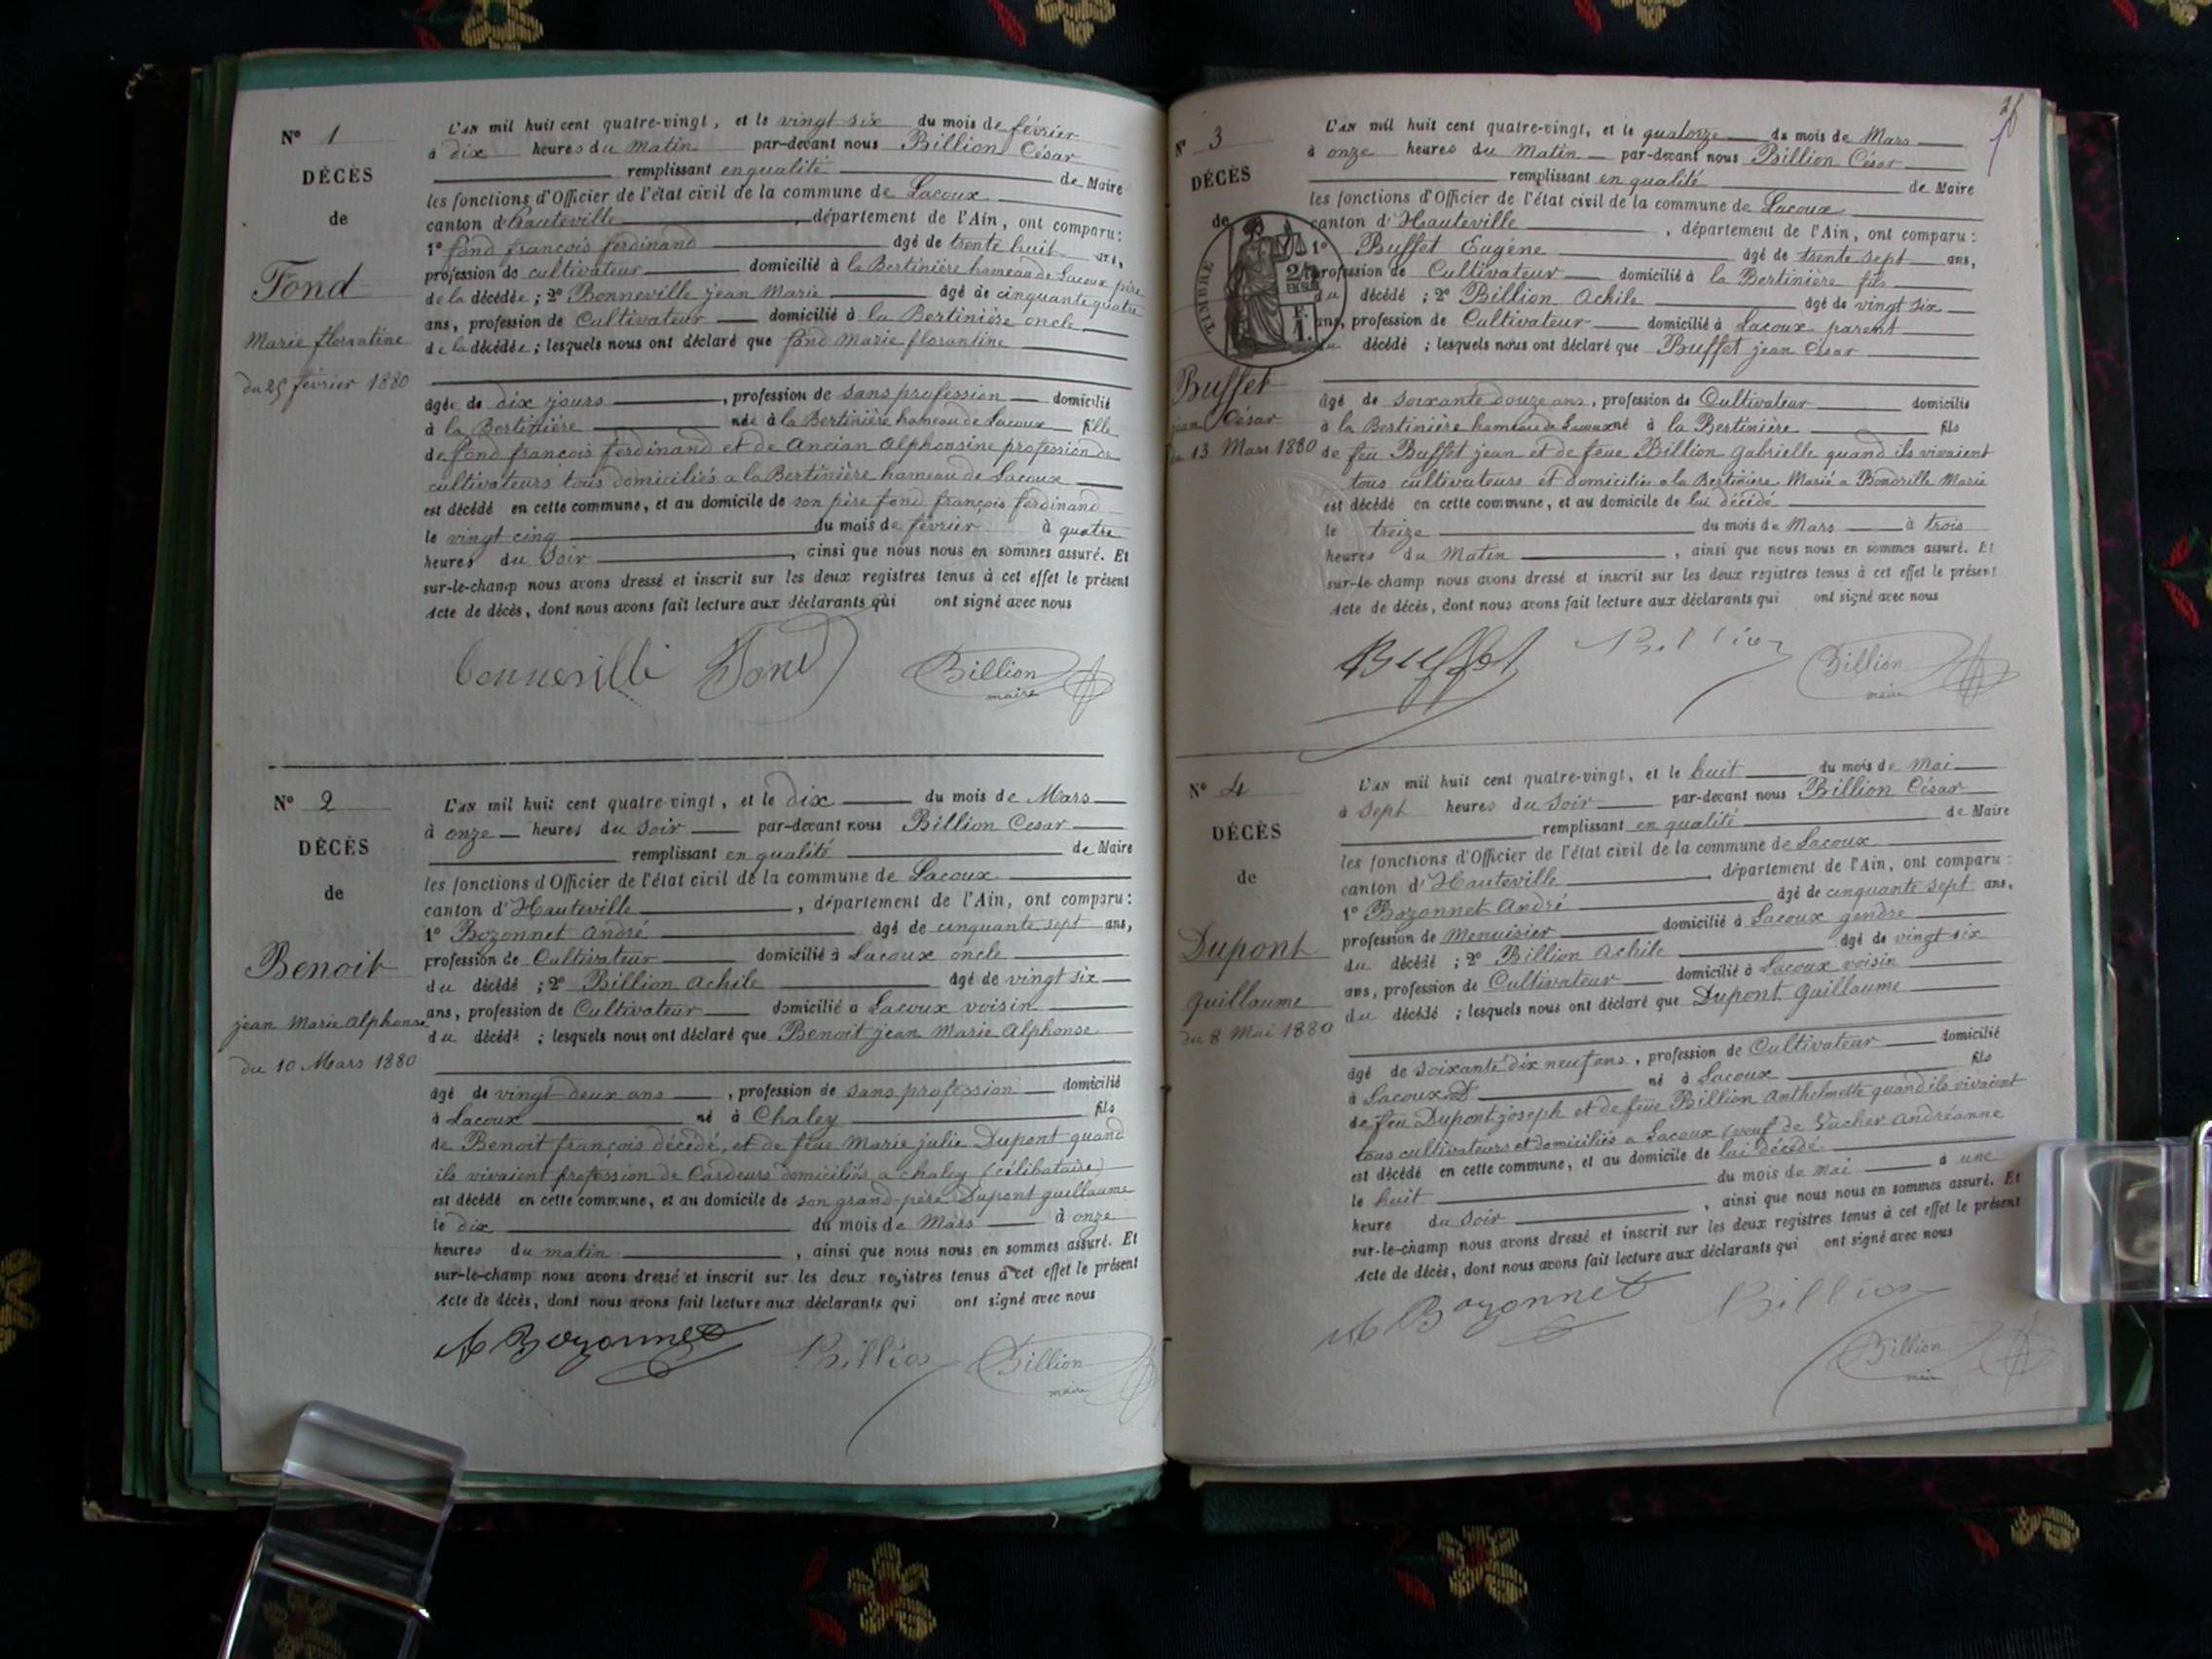 N° 1
DÉCÈS
de
Fond
Marie florantine
du 25 février 1880
L'AN mil huit cent quatre-vingt, et le vingt six du mois de février
à dix heures du Matin par-devant nous Billion César
remplissant en qualité de Maire
les fonctions d'Officier de l'état civil de la commune de Lacoux
canton d'Hauteville, département de l'Ain, ont comparu :
1° fond françois ferdinand âgé de trente huit ans,
profession de cultivateur domicilié à la Bertinière hameau de Lacoux père
de la décédée ; 2° Bonneville jean Marie âgé de cinquante quatre
ans, profession de Cultivateur domicilié à la Bertinière oncle
de la décédée ; lesquels nous ont déclaré que fond Marie florantine
âgée de dix jours, profession de sans profession domicilié
à la Bertinière née à la Bertinière hameau de Lacoux fille
de fond françois ferdinand et de Ancian Alphonsine profession de
cultivateurs tous domiciliés a la Bertinière hameau de Lacoux
est décédé en cette commune, et au domicile de son père fond françois ferdinand
le vingt cinq du mois de février à quatre
heures du Soir, ainsi que nous nous en sommes assuré. Et
sur-le-champ nous avons dressé et inscrit sur les deux registres tenus à cet effet le présent
Acte de décès, dont nous avons fait lecture aux déclarants qui ont signé avec nous
bonneville Fond Billion
maire
N° 2
DÉCÈS
de
Benoit
jean Marie Alphonse
du 10 Mars 1880
L'AN mil huit cent quatre-vingt, et le dix du mois de Mars
à onze heures du Soir par-devant nous Billion Cesar
remplissant en qualité de Maire
les fonctions d'Officier de l'état civil de la commune de Lacoux
canton d'Hauteville, département de l'Ain, ont comparu :
1° Bozonnet André âgé de cinquante sept ans,
profession de Cultivateur domicilié à Lacoux oncle
du décédé ; 2° Billion Achile âgé de vingt six
ans, profession de Cultivateur domicilié à Lacoux voisin
du décédé ; lesquels nous ont déclaré que Benoit jean Marie Alphonse
âgé de vingt deux ans, profession de sans profession domicilié
à Lacoux né à Chaley fils
de Benoit françois décédé, et de feue Marie julie Dupont quand
ils vivaient profession de Cardeurs domiciliés a chaley (célibataire)
est décédé en cette commune, et au domicile de son grand-père Dupont guillaume
le dix du mois de Mars à onze
heures du matin, ainsi que nous nous en sommes assuré. Et
sur-le-champ nous avons dressé et inscrit sur les deux registres tenus à cet effet le présent
Acte de décès, dont nous avons fait lecture aux déclarants qui ont signé avec nous
A Bozonnet Billion Billion
maire
N° 3
DÉCÈS
de
TIMBRE
Buffet
jean César
du 13 Mars 1880
L'AN mil huit cent quatre-vingt, et le quatorze du mois de Mars
à onze heures du Matin par-devant nous Billion César
remplissant en qualité de Maire
les fonctions d'Officier de l'état civil de la commune de Lacoux
canton d'Hauteville, département de l'Ain, ont comparu :
1° Buffet Eugène âgé de trente sept ans,
profession de Cultivateur domicilié à la Bertinière fils
du décédé ; 2° Billion Achile âgé de vingt six
ans, profession de Cultivateur domicilié à Lacoux parent
du décédé ; lesquels nous ont déclaré que Buffet jean César
âgé de soixante douze ans, profession de Cultivateur domicilié
à la Bertinière hameau de Lacoux né à la Bertinière fils
de feu Buffet jean et de feue Billion Gabrielle quand ils vivaient
tous cultivateurs et domiciliés a la Bertinière Marié a Marie
est décédé en cette commune, et au domicile de lui décédé
le treize du mois de Mars à trois
heures du Matin, ainsi que nous nous en sommes assuré. Et
sur-le-champ nous avons dressé et inscrit sur les deux registres tenus à cet effet le présent
Acte de décès, dont nous avons fait lecture aux déclarants qui ont signé avec nous
Buffet Billion Billion
maire
N° 4
DÉCÈS
de
Dupont
guillaume
du 8 Mai 1880
L'AN mil huit cent quatre-vingt, et le huit du mois de Mai
à Sept heures du Soir par-devant nous Billion César
remplissant en qualité de Maire
les fonctions d'Officier de l'état civil de la commune de Lacoux
canton d'Hauteville, département de l'Ain, ont comparu :
1° Bozonnet André âgé de cinquante sept ans,
profession de Menuisier domicilié à Lacoux gendre
du décédé ; 2° Billion Achile âgé de vingt six
ans, profession de Cultivateur domicilié à Lacoux voisin
du décédé ; lesquels nous ont déclaré que Dupont Guillaume
âgé de soixante dix neuf ans, profession de Cultivateur domicilié
à Lacoux né à Lacoux fils
de feu Dupont joseph et de feue Billion Anthelmette quand ils vivaient
tous cultivateurs et domiciliés a Lacoux (veuf de Vucher Andréanne
est décédé en cette commune, et au domicile de lui décédé
le huit du mois de mai à une
heure du Soir, ainsi que nous nous en sommes assuré. Et
sur-le-champ nous avons dressé et inscrit sur les deux registres tenus à cet effet le présent
Acte de décès, dont nous avons fait lecture aux déclarants qui ont signé avec nous
A Bozonnet Billion
Billion
maire